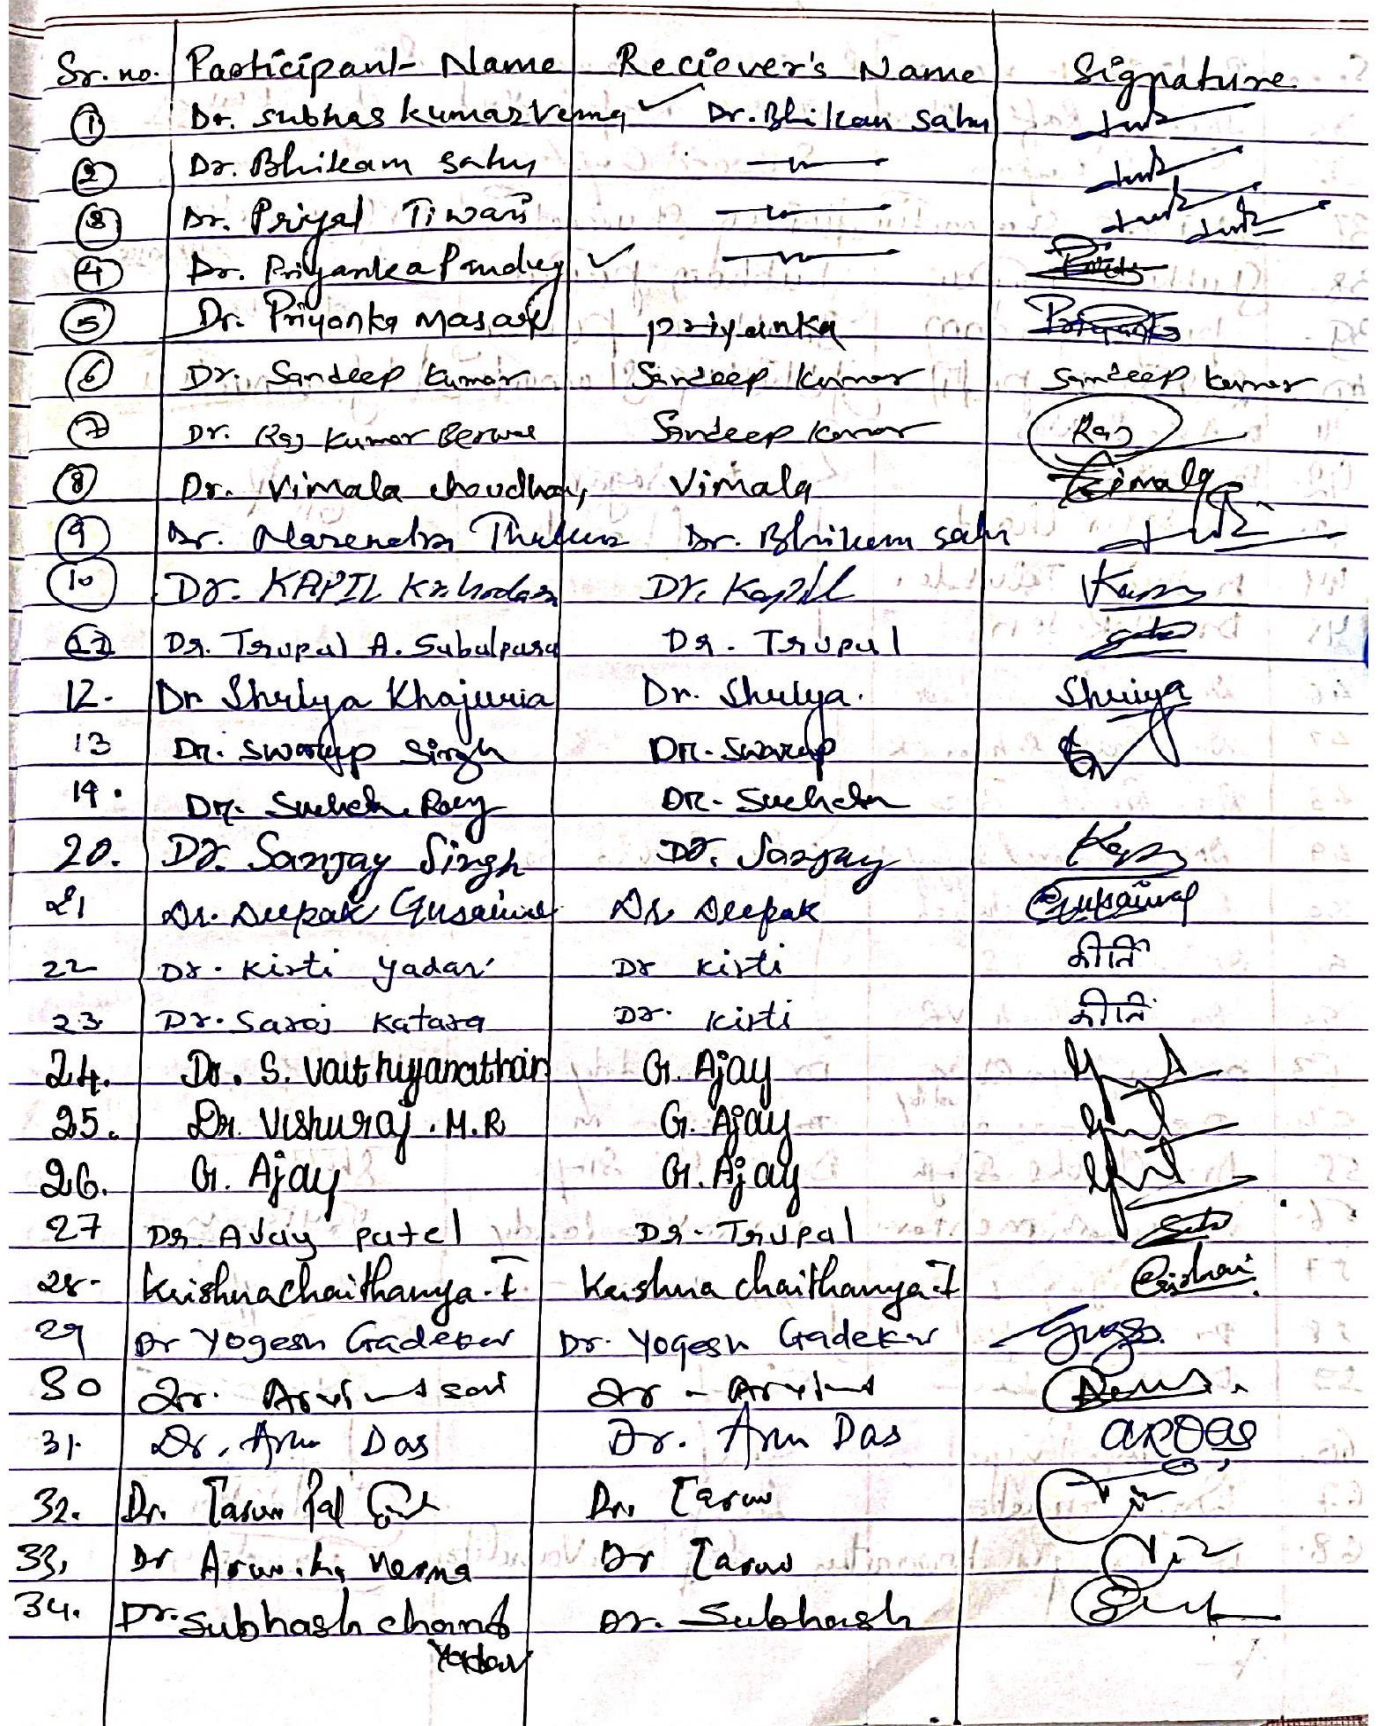 Sr. no. Participant Name Reciever's Name Signature
1 Dr. Subhas Kumar Verma ✓ Dr. Bhikam Sahu
2 Dr. Bhikam Sahu —〃—
3 Dr. Priyal Tiwari —〃—
4 Dr. Priyanka Pandey ✓ —〃—
5 Dr. Priyanka Masase priyanka Priyanka
6 Dr. Sandeep Kumar Sandeep Kumar Sandeep Kumar
7 Dr. Raj Kumar Berwal Sandeep Kumar Raj
8 Dr. Vimala choudhary Vimala Vimala
9 Dr. Narendra Thakur Dr. Bhikam Sahu
10 Dr. KAPIL Dr. Kapil
11 Dr. Trupal A. Sabalpara Dr. Trupal
12. Dr Shulya Khajuria Dr. Shulya. Shriya
13 Dr. Swarup Singh Dr. Swarup
19. Dr. Sucheta Roy Dr. Sucheta
20. Dr. Sanjay Singh Dr. Sanjay
21 Dr. Deepak Gusaiwal Dr. Deepak Gusaiwal
22 Dr. Kirti Yadav Dr Kirti कीर्ति
23 Dr. Saroj Katara Dr. Kirti कीर्ति
24. Dr. S. Vaithiyanathan G. Ajay
25. Dr. Vishuraj. M.R G. Ajay
26. G. Ajay G. Ajay
27 Dr. Avay patel Dr. Trupal
28. Krishnachaithanya. T Krishna chaithanya. T
29 Dr Yogesh Gadekar Dr. Yogesh Gadekar
30 Dr. Arvind soni Dr - Arvind
31. Dr. Arun Das Dr. Arun Das ARDas
32. Dr. Tarun Pal Dr. Tarun
33. Dr Arun. Verma Dr Tarun
34. Dr. Subhash chand Dr. Subhash
Yadav